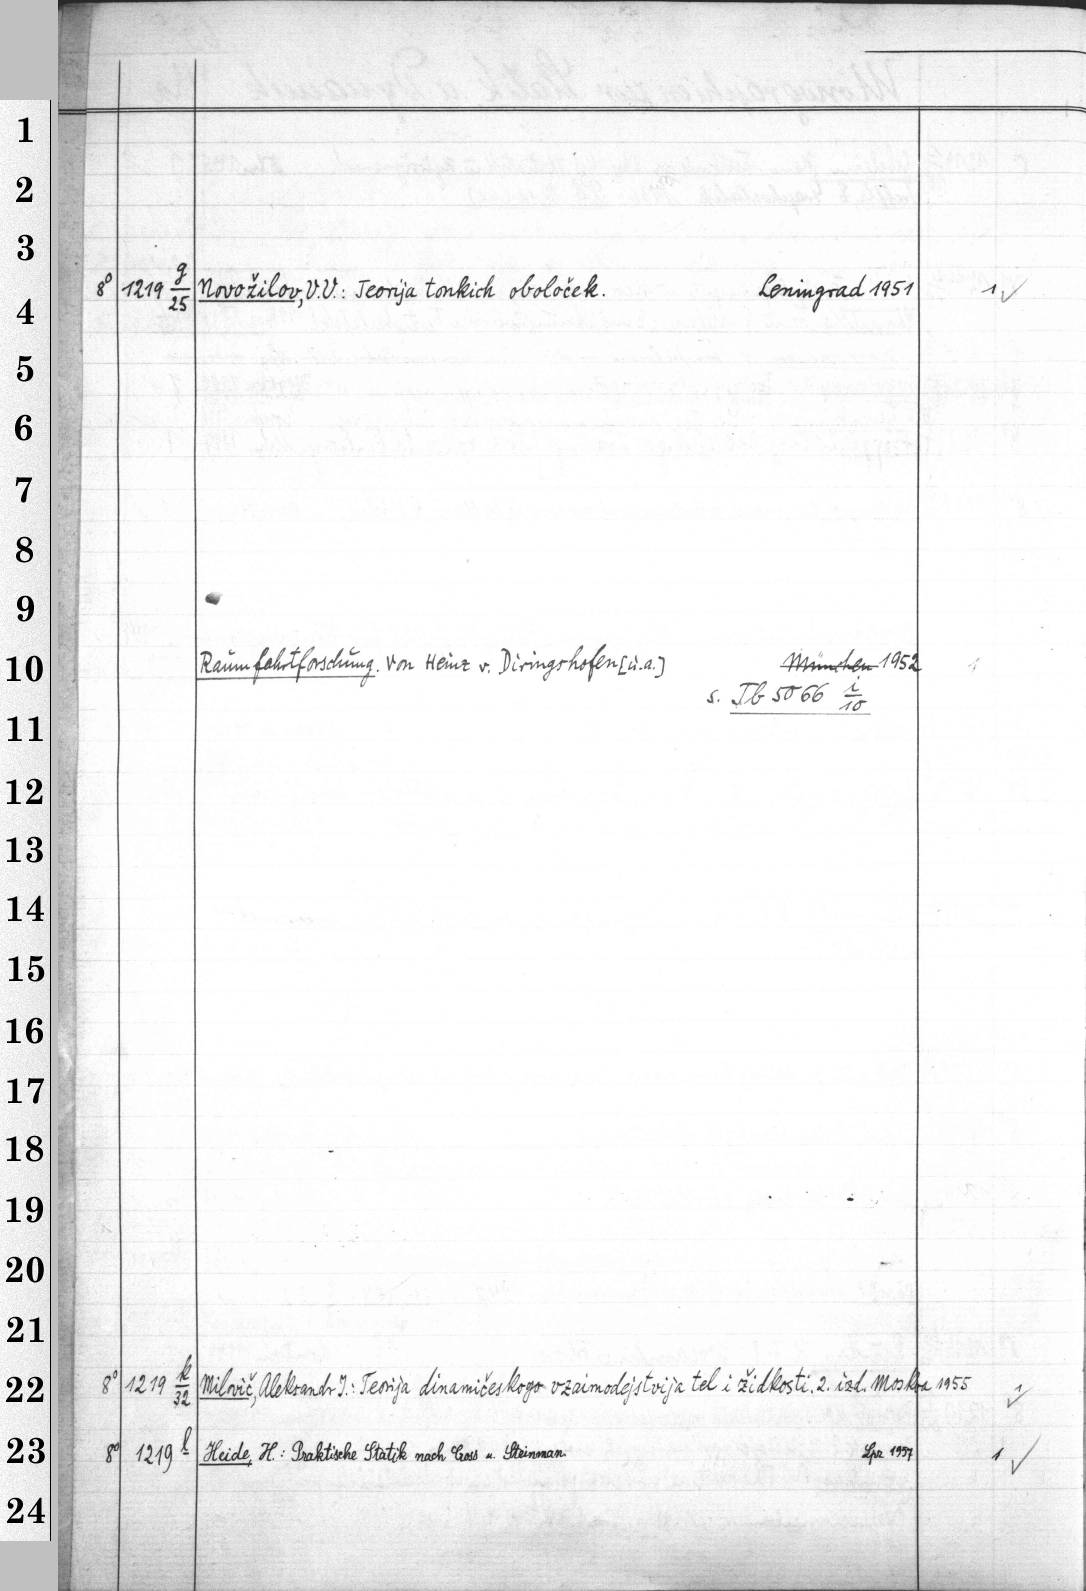 1
2
3
8° 1219 g/25 Novožilov, V.V.: Teorija tonkich oboloček. Leningrad 1951 1 ✓
4
5
6
7
8
9
10 Raumfahrtforschung. Von Heinz v. Diringshofen [u.a.] München 1952 1
s. Tb 5066 i/10
11
12
13
14
15
16
17
18
19
20
21
22 8° 1219 k/32 Milovič, Aleksandr J.: Teorija dinamičeskogo vzaimodejstvija tel i židkosti. 2. izd. Moskva 1955 1 ✓
23 8° 1219 l Heide, H.: Praktische Statik nach Cross u. Steinman. Lpz 1957 1 ✓
24